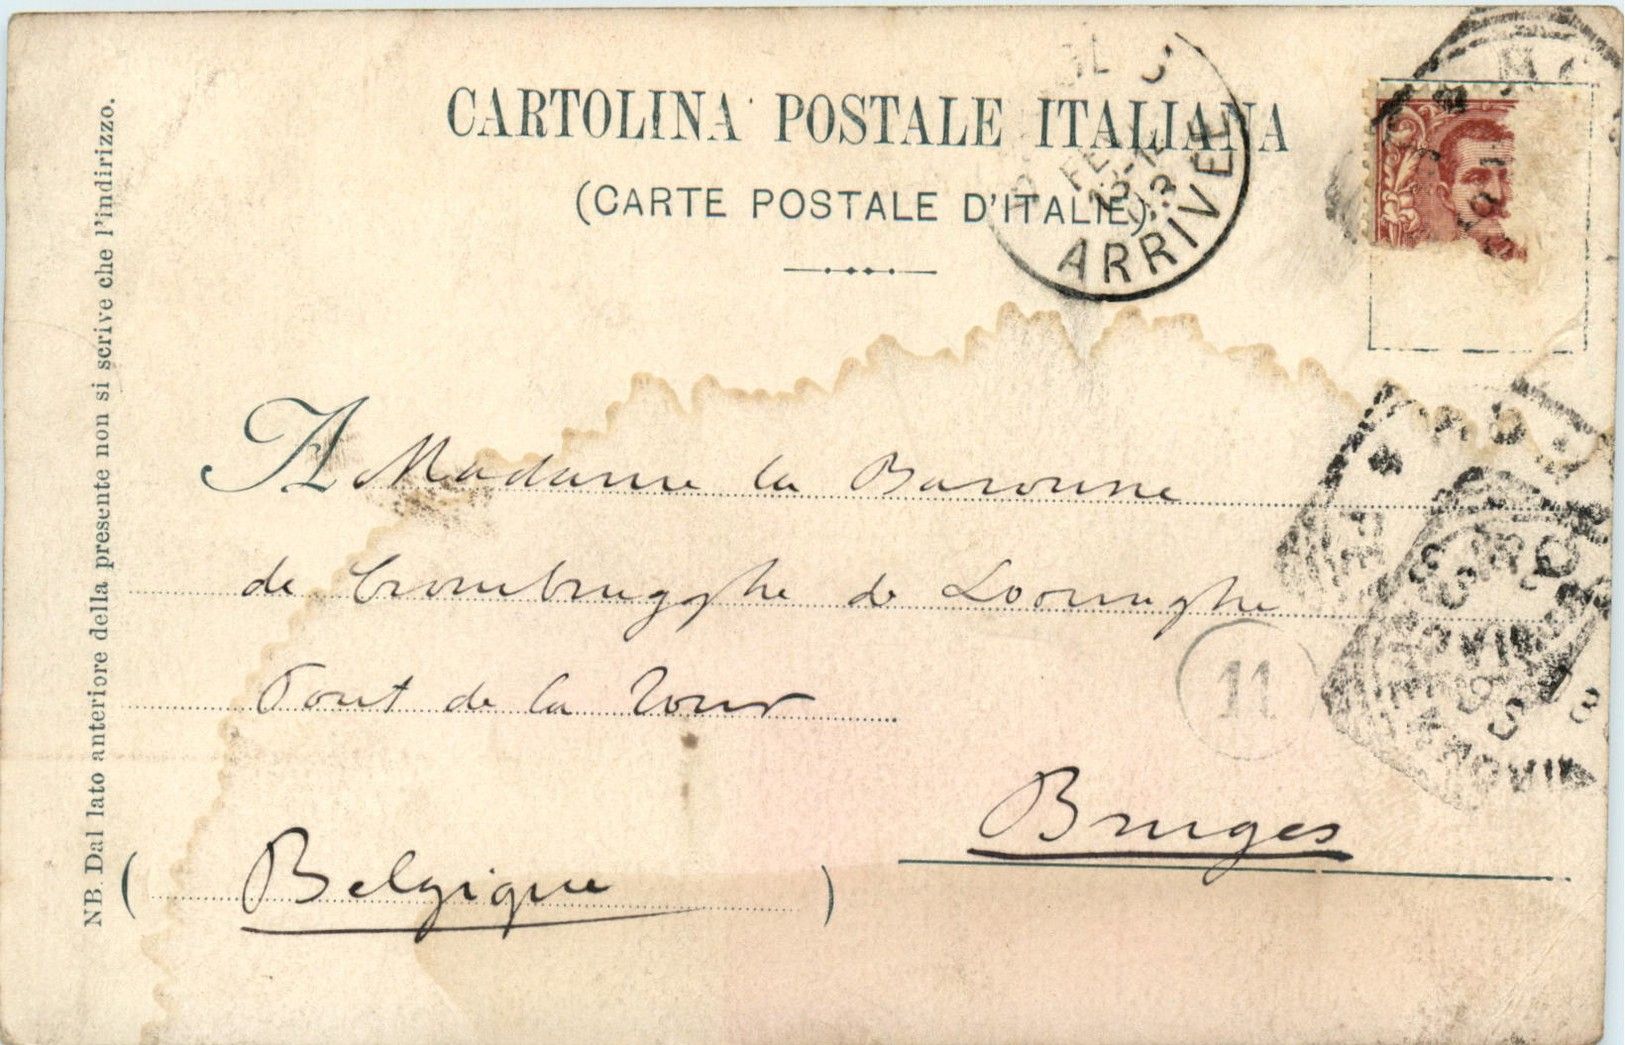 CARTOLINA POSTALE ITALIANA
(CARTE POSTALE D'ITALIE)
ARRIVÉE
A Madame la Baronne
de Crombrugghe de Looringhe
Pont de la Tour
Bruges
(Belgique)
11
NB. Dal lato anteriore della presente non si scrive che l'indirizzo.